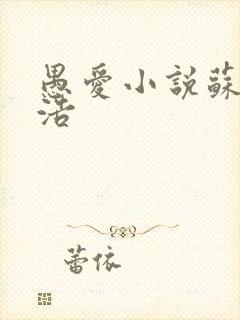 愚愛小說蘇
活
蕾依